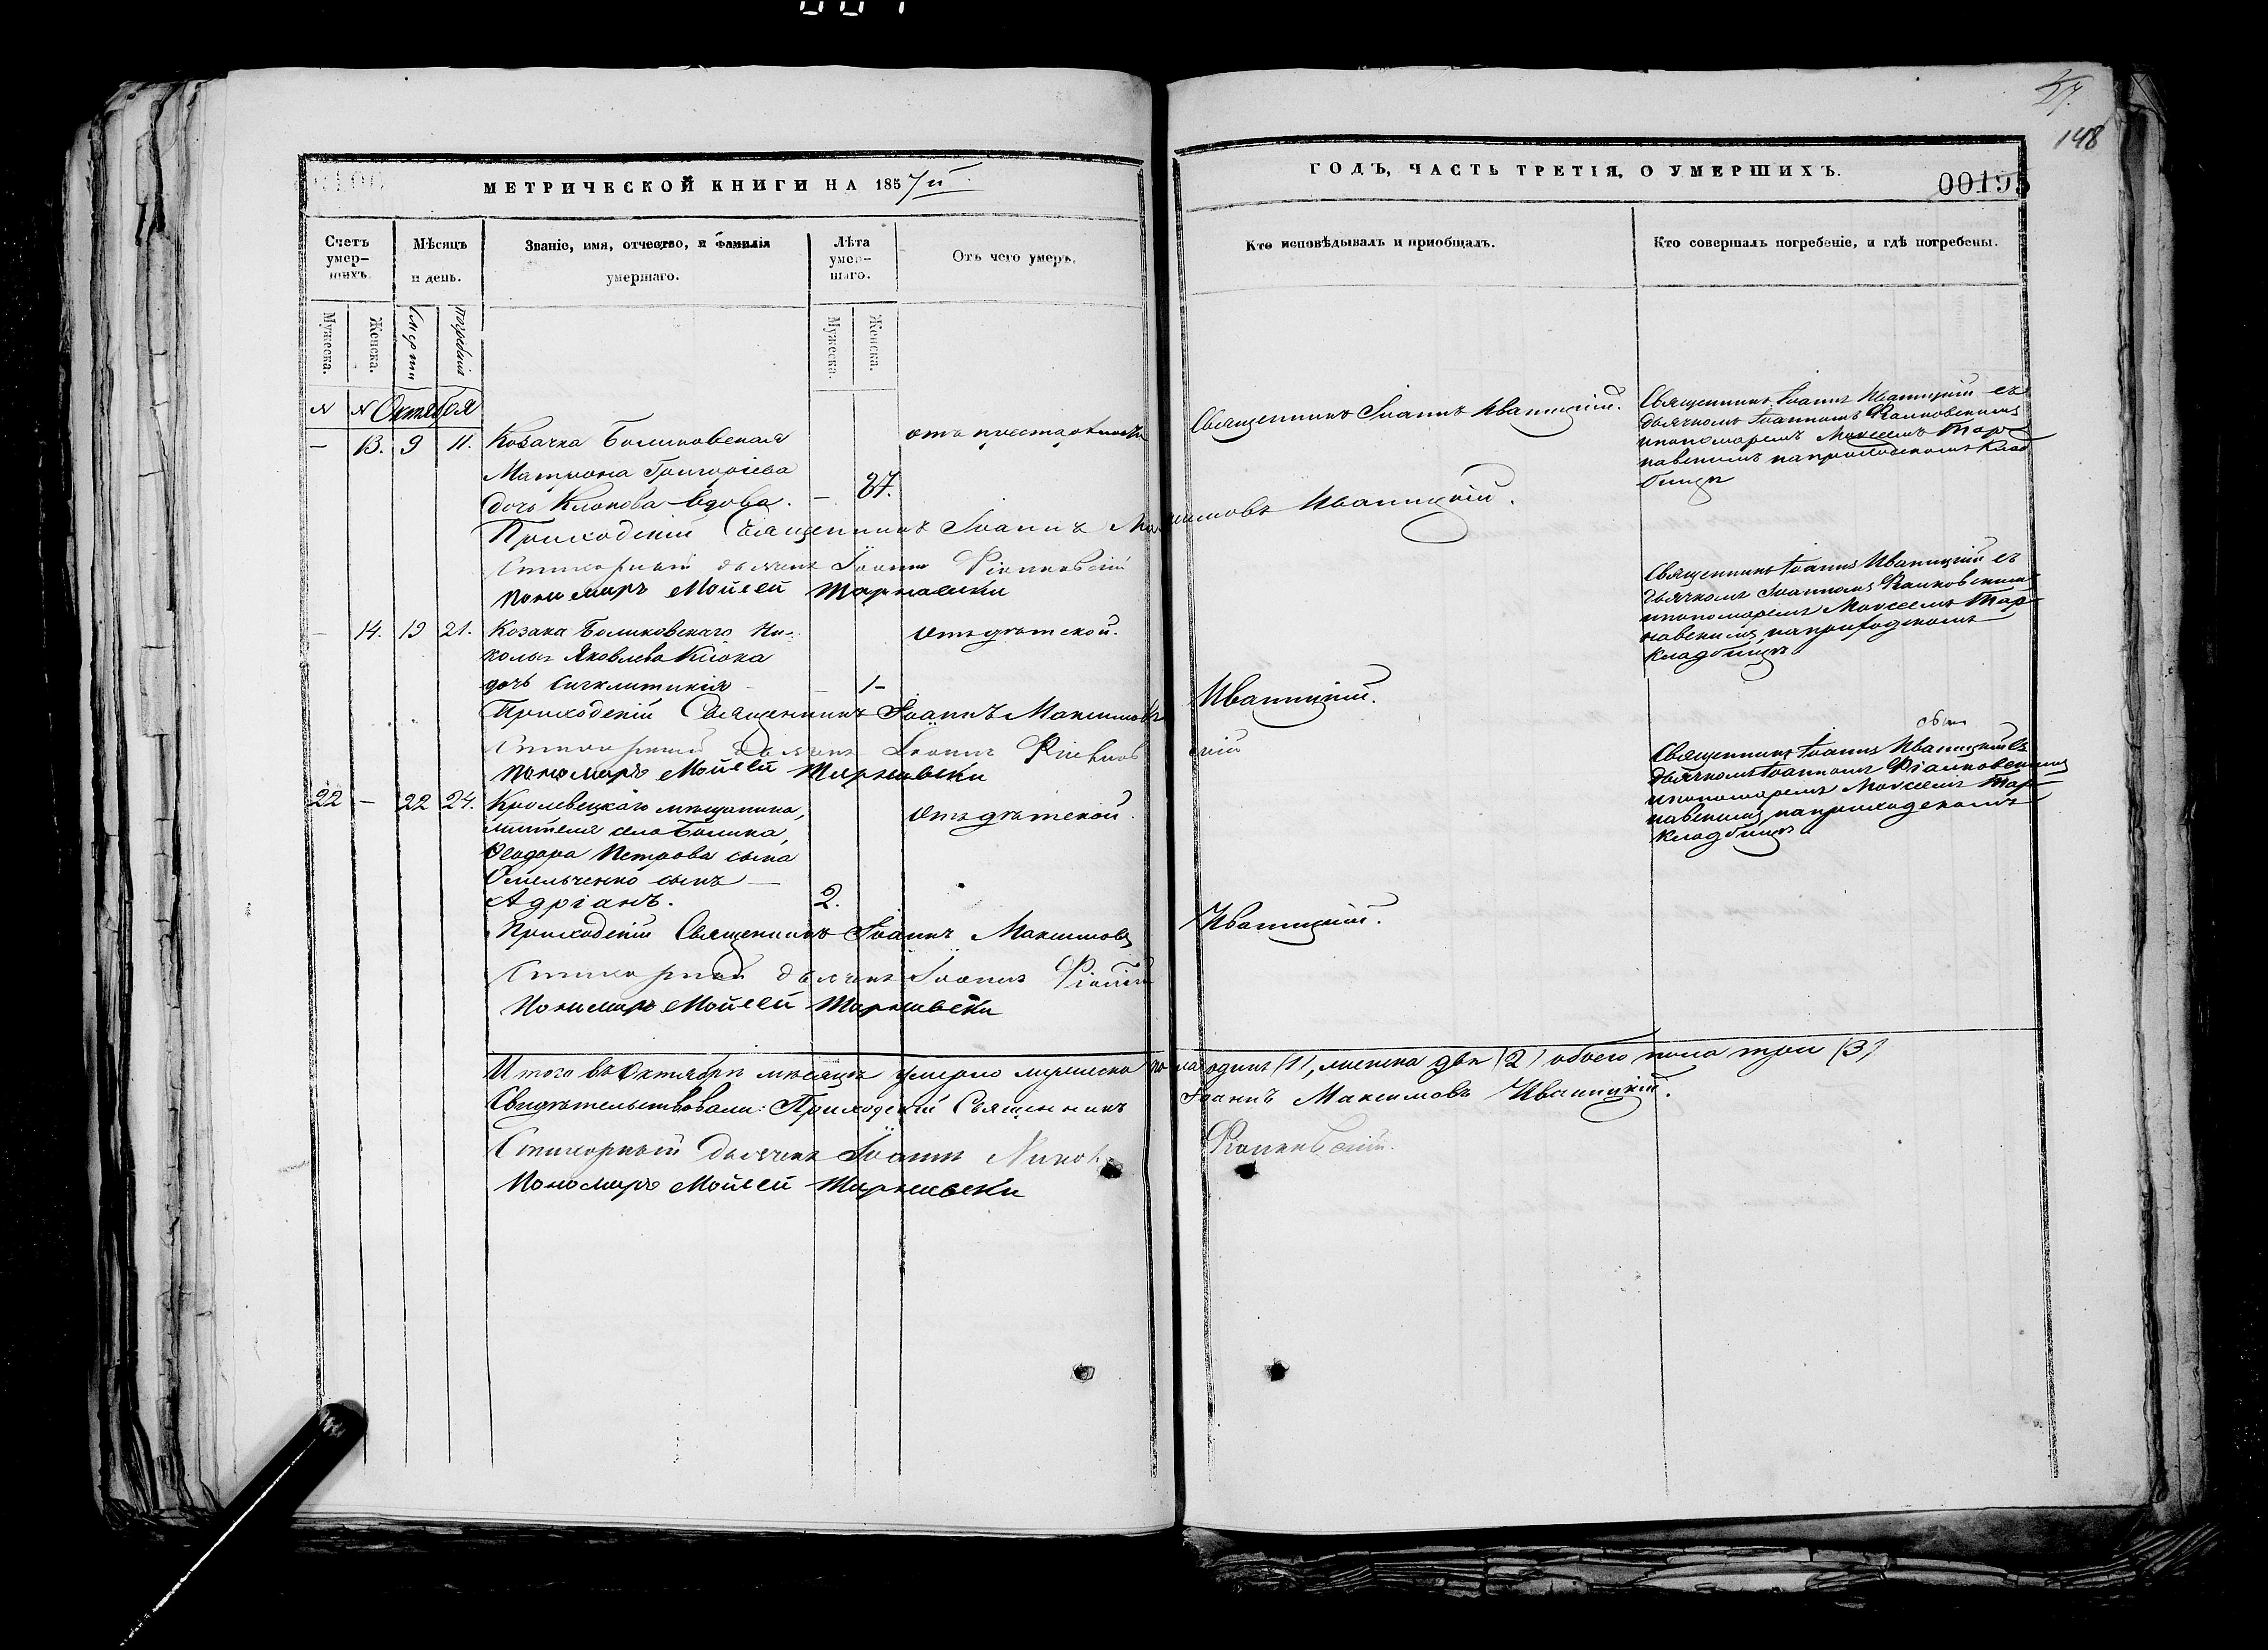 27.
148
МЕТРИЧЕСКОЙ КНИГИ НА 1857й
ГОДЪ, ЧАСТЬ ТРЕТІЯ, О УМЕРШИХЪ.
00195
Счетъ умер-шихъ.
Мѣсяцъ и день.
Званіе, имя, отчество, и фамилія умершаго.
Лѣта умер-шаго.
Отъ чего умеръ.
Кто исповѣдывалъ и пріобщалъ.
Кто совершалъ погребеніе, и гдѣ погребены.
Мужеска.
Женска.
смерти
погребенія
Мужеска.
Женска.
N N Октября
— 13. 9 11. Козачка
отъ престарѣлости
Священникъ Іоаннъ Иваницкій.
Священникъ Іоаннъ Иваницкій съ
дьячкомъ Іоанномъ
и пономаремъ Моисеемъ Тар-
навскимъ на приходскомъ клад
бищѣ
Матрона Григоріева
дочь Клокова вдова. — 87.
Приходскій Священникъ Іоаннъ Максимовъ Иваницкій.
Стихарный дьячекъ Іоаннъ
Пономарь Мойсей Тарнавски
— 14. 19 21. Козака Ни-
колы Яковлева Клока
дочь Сигклитикія — 1 —
отъ дѣтской.
Священникъ Іоаннъ Иваницкій съ
дьячкомъ Іоанномъ
и пономаремъ Моисеемъ Тар-
навскимъ на приходскомъ
кладбищѣ
Приходскій Священникъ Іоаннъ Максимовъ Иваницкій.
Стихарный дьячекъ Іоаннъ
Пономарь Мойсей Тарнавски
22 — 22 24. Кролевецкаго мѣщанина,
жителя села
Ѳеодора Петрова сына
Омельченко сынъ —
Адріанъ. 2.
отъ дѣтской.
Священникъ Іоаннъ Иваницкій съ
дьячкомъ Іоанномъ
и пономаремъ Моисеемъ Тар-
навскимъ на приходскомъ
кладбищѣ
Приходскій Священникъ Іоаннъ Максимовъ Иваницкій.
Стихарный дьячекъ Іоаннъ
Пономарь Мойсей Тарнавски
Итого въ Октябрѣ мѣсяцѣ умерло мужеска пола одинъ (1), женска двѣ (2) обоего пола три (3)
Свидѣтельствовали: Приходскій Священникъ Іоаннъ Максимовъ Иваницкій.
Стихарный дьячекъ Іоаннъ
Пономарь Мойсей Тарнавски